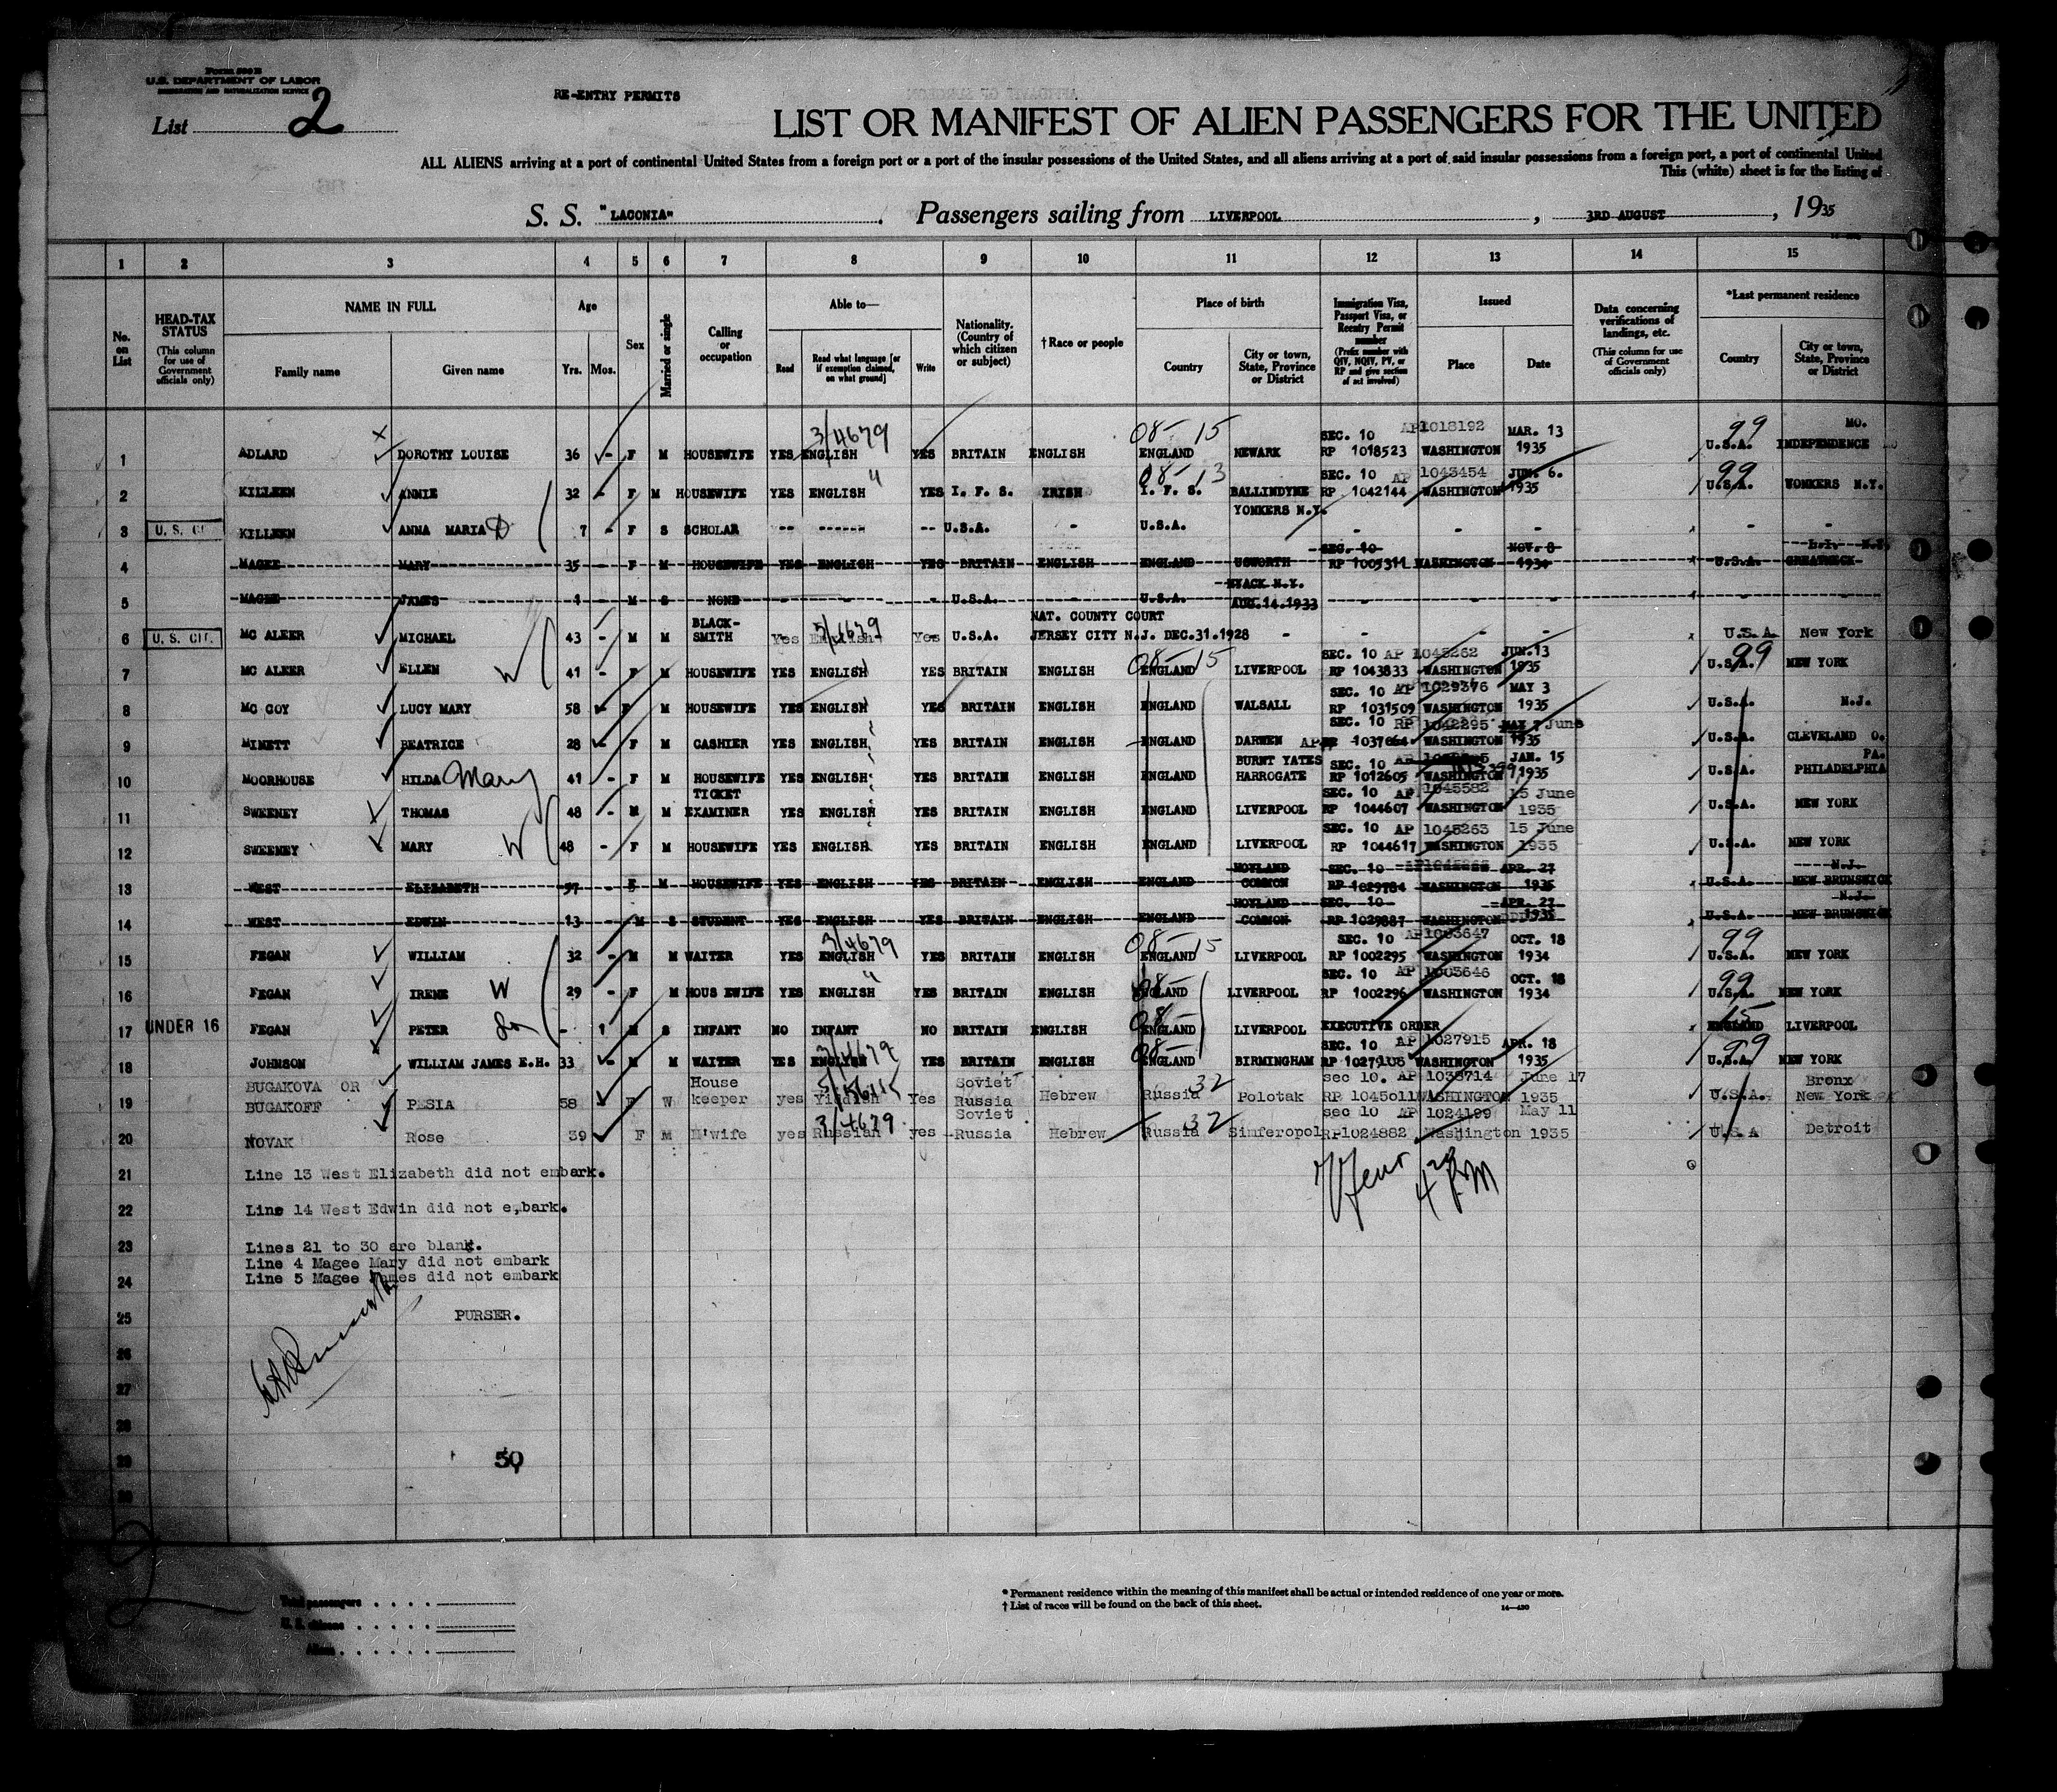 Form 500 B
U.S. DEPARTMENT OF LABOR
IMMIGRATION AND NATURALIZATION SERVICE
RE-ENTRY PERMITS
List 2
LIST OR MANIFEST OF ALIEN PASSENGERS FOR THE UNITED
ALL ALIENS arriving at a port of continental United States from a foreign port or a port of the insular possessions of the United States, and all aliens arriving at a port of said insular possessions from a foreign port, a port of continental United
This (white) sheet is for the listing of
S. S. "LACONIA" . Passengers sailing from LIVERPOOL , 3RD AUGUST , 1935
1 2 3 4 5 6 7 8 9 10 11 12 13 14 15
No. on List
HEAD-TAX STATUS (This column for use of Government officials only)
NAME IN FULL Family name Given name
Age Yrs. Mos.
Sex
Married or single
Calling or occupation
Able to— Read Read what language [or if exemption claimed, on what ground] Write
Nationality. (Country of which citizen or subject)
†Race or people
Place of birth Country City or town, State, Province or District
Immigration Visa, Passport Visa, or Reentry Permit number (Prefix number with QIV, NQIV, PV, or RP and give section of act involved)
Issued Place Date
Data concerning verifications of landings, etc. (This column for use of Government officials only)
*Last permanent residence Country City or town, State, Province or District
3/4679 08- 15 SEC. 10 AP1018192 MAR. 13 99 MO.
1 ADLARD DOROTHY LOUISE 36 - F M HOUSEWIFE YES ENGLISH YES BRITAIN ENGLISH ENGLAND NEWARK RP 1018523 WASHINGTON 1935 U.S.A. INDEPENDENCE
" 08- 13 SEC. 10 AP 1043454 JUN. 6. 99
2 KILLEEN ANNIE 32 - F M HOUSEWIFE YES ENGLISH YES I. F. S. IRISH I. F. S. BALLINDYNE RP 1042144 WASHINGTON 1935 U.S.A. YONKERS N.Y.
YONKERS N.Y.
3 U. S. CI KILLEEN ANNA MARIA D 7 - F S SCHOLAR -- ------ -- U.S.A. - U.S.A. - - - - -
SEC. 10 NOV. 8 L.I. N.Y.
4 MAGEE MARY 35 - F M HOUSEWIFE YES ENGLISH YES BRITAIN ENGLISH ENGLAND USWORTH RP 1005311 WASHINGTON 1934 U.S.A. GREATNECK
NYACK N.Y.
5 MAGEE JAMES 1 - M S NONE - - - U.S.A. - U.S.A. AUG.14.1933 - - - - -
BLACK- 3/4679 NAT. COUNTY COURT
6 U. S. CIT. MC ALEER MICHAEL 43 - M M SMITH Yes English Yes U.S.A. JERSEY CITY N.J. DEC.31.1928 - - - - U.S.A. New York
08- 15 SEC. 10 AP 1045262 JUN.13 99
7 MC ALEER ELLEN W 41 - F M HOUSEWIFE YES ENGLISH YES BRITAIN ENGLISH ENGLAND LIVERPOOL RP 1043833 WASHINGTON 1935 U.S.A. NEW YORK
SEC. 10 AP 1029376 MAY 3
8 MC COY LUCY MARY 58 - F M HOUSEWIFE YES ENGLISH YES BRITAIN ENGLISH ENGLAND WALSALL RP 1031509 WASHINGTON 1935 U.S.A. N.J.
SEC. 10 RP 1042295 MAY 7 June
9 MINETT BEATRICE 28 - F M CASHIER YES ENGLISH YES BRITAIN ENGLISH ENGLAND DARWEN AP 1037664 WASHINGTON 1935 U.S.A. CLEVELAND O.
BURNT YATES SEC. 10 AP JAN. 15 PA.
10 MOORHOUSE HILDA Mary 41 - F M HOUSEWIFE YES ENGLISH YES BRITAIN ENGLISH ENGLAND HARROGATE RP 1012605 WASHINGTON 1935 U.S.A. PHILADELPHIA
TICKET SEC. 10 AP 1045582 15 June
11 SWEENEY THOMAS 48 - M M EXAMINER YES ENGLISH YES BRITAIN ENGLISH ENGLAND LIVERPOOL RP 1044607 WASHINGTON 1935 U.S.A. NEW YORK
SEC. 10 AP 1045263 15 June
12 SWEENEY MARY W 48 - F M HOUSEWIFE YES ENGLISH YES BRITAIN ENGLISH ENGLAND LIVERPOOL RP 1044617 WASHINGTON 1935 U.S.A. NEW YORK
HOYLAND SEC. 10 APR. 27 N.J.
13 WEST ELIZABETH 57 - F M HOUSEWIFE YES ENGLISH YES BRITAIN ENGLISH ENGLAND COMMON RP 1029784 WASHINGTON 1935 U.S.A. NEW BRUNSWICK
HOYLAND SEC. 10 APR. 27 N.J.
14 WEST EDWIN 13 - M S STUDENT YES ENGLISH YES BRITAIN ENGLISH ENGLAND COMMON RP 1029887 WASHINGTON 1935 U.S.A. NEW BRUNSWICK
3/4679 08- 15 SEC. 10 AP1003647 OCT. 18 99
15 FEGAN WILLIAM 32 - M M WAITER YES ENGLISH YES BRITAIN ENGLISH ENGLAND LIVERPOOL RP 1002295 WASHINGTON 1934 U.S.A. NEW YORK
" 08- SEC. 10 AP 1003646 OCT. 18 99
16 FEGAN IRENE W 29 - F M HOUS EWIFE YES ENGLISH YES BRITAIN ENGLISH ENGLAND LIVERPOOL RP 1002296 WASHINGTON 1934 U.S.A. NEW YORK
08- 15
17 UNDER 16 FEGAN PETER Son - 1 M S INFANT NO INFANT NO BRITAIN ENGLISH ENGLAND LIVERPOOL EXECUTIVE ORDER ENGLAND LIVERPOOL
3/4679 08- SEC. 10 AP 1027915 APR. 18 99
18 JOHNSON WILLIAM JAMES E.H. 33 - M M WAITER YES ENGLISH YES BRITAIN ENGLISH ENGLAND BIRMINGHAM RP 1027108 WASHINGTON 1935 U.S.A. NEW YORK
BUGAKOVA OR House Soviet 32 sec 10. AP 1038714 June 17 Bronx
19 BUGAKOFF PESIA 58 F W keeper yes Yiddish Yes Russia Hebrew Russia Polotak RP 1045011 WASHINGTON 1935 U.S.A. New York
3/4679 Soviet 32 sec 10 AP 1024199 May 11
20 NOVAK Rose 39 F M H'wife yes Russian yes Russia Hebrew Russia Simferopol RP1024882 Washington 1935 U.S.A Detroit
21 Line 13 West Elizabeth did not embark.
4 20 PM
22 Line 14 West Edwin did not e,bark.
23 Lines 21 to 30 are blank.
Line 4 Magee Mary did not embark
24 Line 5 Magee James did not embark
25 PURSER.
26
27
28
29 50
30
Total passengers
U. S. citizens
Aliens
* Permanent residence within the meaning of this manifest shall be actual or intended residence of one year or more.
† List of races will be found on the back of this sheet.
14—430